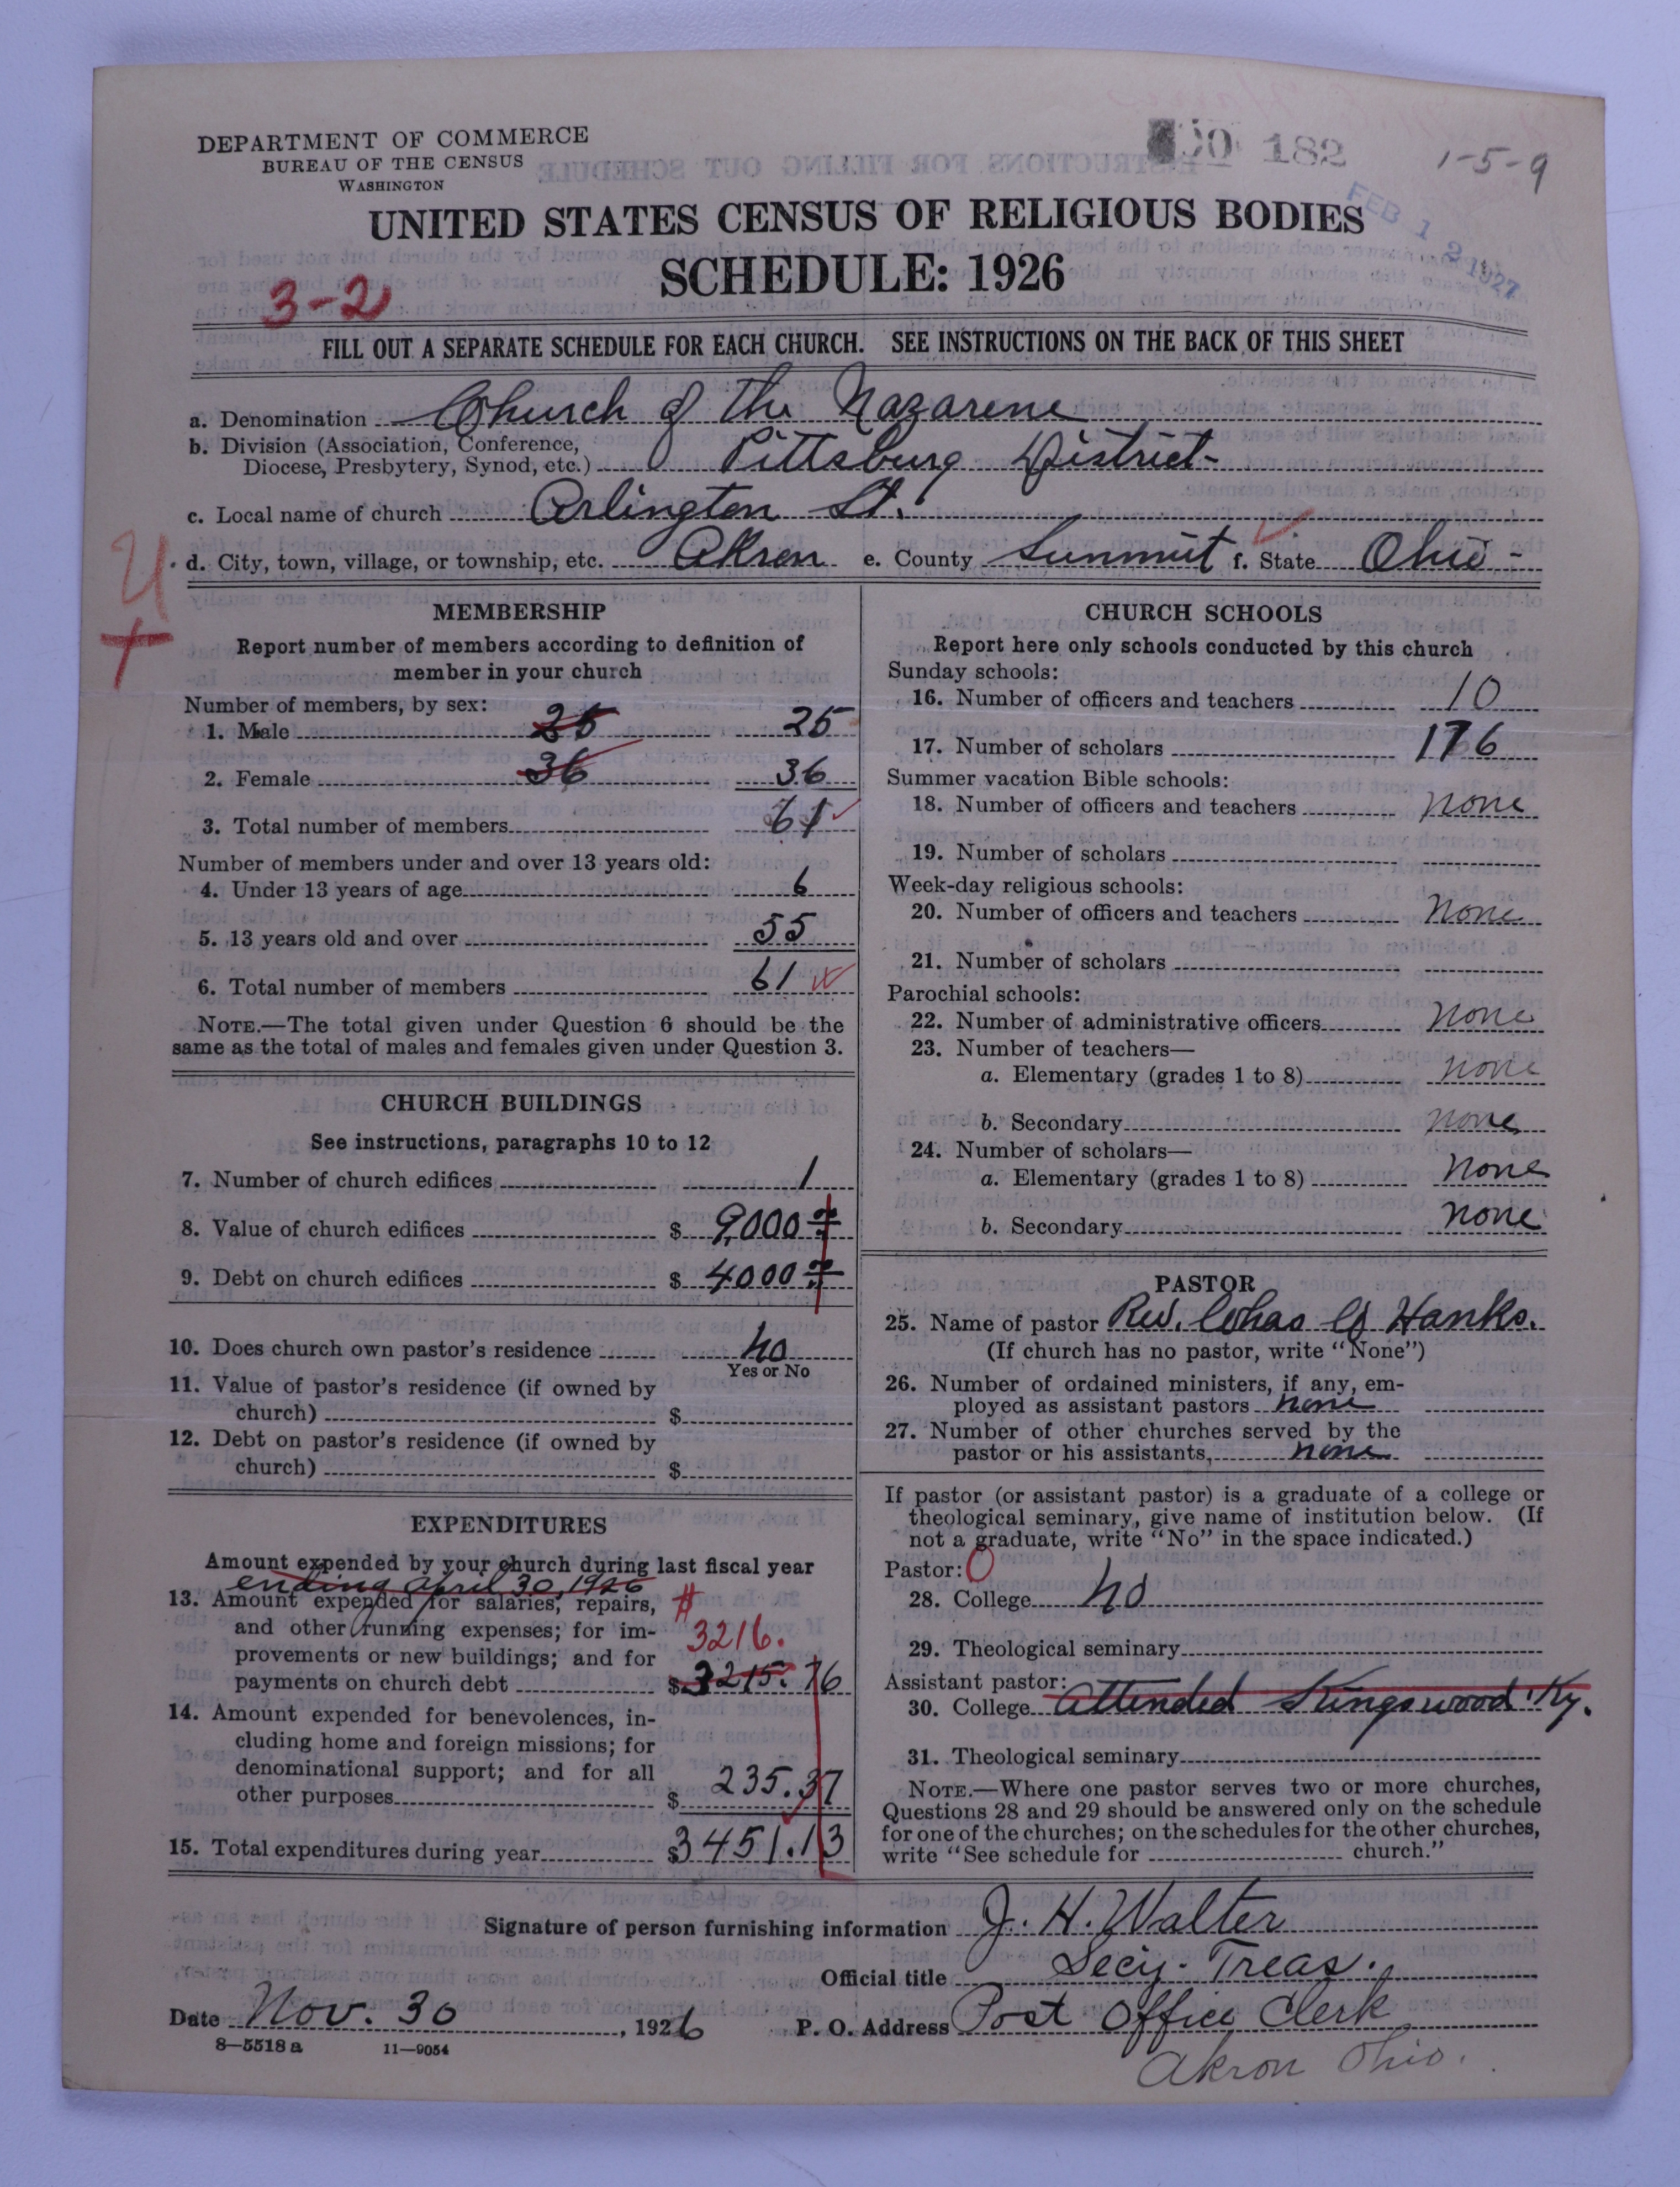 DEPARTMENT OF COMMERCE
BUREAU OF THE CENSUS
WASHINGTON
182
1-5-9
FEB 12 1927
UNITED STATES CENSUS OF RELIGIOUS BODIES
SCHEDULE: 1926
3-2
FILL OUT A SEPARATE SCHEDULE FOR EACH CHURCH. SEE INSTRUCTIONS ON THE BACK OF THIS SHEET
a. Denomination Church of the Nazarene
b. Division (Association, Conference,
Diocese, Presbytery, Synod, etc.) Pittsburg District-
c. Local name of church Arlington St.
d. City, town, village, or township, etc. Akron e. County Summit f. State Ohio -
MEMBERSHIP
Report number of members according to definition of
member in your church
Number of members, by sex:
1. Male 25 25
2. Female 36 36
3. Total number of members 61
Number of members under and over 13 years old:
4. Under 13 years of age 6
5. 13 years old and over 55
6. Total number of members 61
NOTE.—The total given under Question 6 should be the
same as the total of males and females given under Question 3.
CHURCH BUILDINGS
See instructions, paragraphs 10 to 12
7. Number of church edifices 1
8. Value of church edifices $ 9,000
9. Debt on church edifices $ 4000
10. Does church own pastor's residence no
Yes or No
11. Value of pastor's residence (if owned by
church) $
12. Debt on pastor's residence (if owned by
church) $
EXPENDITURES
Amount expended by your church during last fiscal year
ending april 30 1926
13. Amount expended for salaries, repairs, #
and other running expenses; for im- 3216.
provements or new buildings; and for
payments on church debt $3215.76
14. Amount expended for benevolences, in-
cluding home and foreign missions; for
denominational support; and for all
other purposes $ 235.37
15. Total expenditures during year $3451.13
CHURCH SCHOOLS
Report here only schools conducted by this church
Sunday schools:
16. Number of officers and teachers 10
17. Number of scholars 176
Summer vacation Bible schools:
18. Number of officers and teachers none
19. Number of scholars
Week-day religious schools:
20. Number of officers and teachers none
21. Number of scholars
Parochial schools:
22. Number of administrative officers none
23. Number of teachers—
a. Elementary (grades 1 to 8) none
b. Secondary none
24. Number of scholars—
a. Elementary (grades 1 to 8) none
b. Secondary none
PASTOR
25. Name of pastor Rev. Chas Hanks.
(If church has no pastor, write "None")
26. Number of ordained ministers, if any, em-
ployed as assistant pastors none
27. Number of other churches served by the
pastor or his assistants, none
If pastor (or assistant pastor) is a graduate of a college or
theological seminary, give name of institution below. (If
not a graduate, write "No" in the space indicated.)
Pastor: 0
28. College no
29. Theological seminary
Assistant pastor:
30. College attended Kingswood Ky.
31. Theological seminary
NOTE.—Where one pastor serves two or more churches,
Questions 28 and 29 should be answered only on the schedule
for one of the churches; on the schedules for the other churches,
write "See schedule for church."
Signature of person furnishing information J. H. Walter
Official title Secy-Treas.
Date Nov. 30, 1926 P. O. Address Post Office Clerk
Akron Ohio.
8-5518 a 11-9054